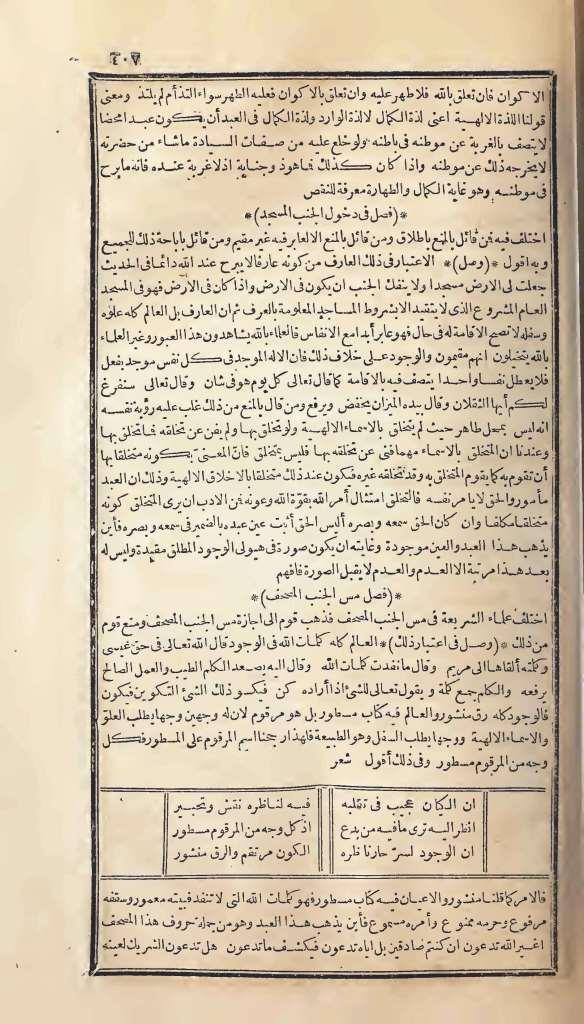 ٤٠٧
الاكوان فان تعلق بالله فلا طهر عليه وان تعلق بالاكوان فعليه الطهر سواء التذ أم لم يلتذ ومعنى
قولنا اللذة الالهية اعنى لذة الكمال لا لذة الوارد ولذة الكمال فى العبد أن يكون عبدا محضا
لا يتصف بالغربة عن موطنه فى باطنه ولو خلع عليه من صفات السيادة ما شاء من حضرته
لا يخرجه ذلك عن موطنه واذا كان كذلك فما هو ذو جنابة اذ لا غربة عنده فانه ما برح
فى موطنه وهو غاية الكمال والطهارة معرفة للنقص
*(فصل فى دخول الجنب المسجد)*
اختلف فيه فمن قائل بالمنع باطلاق ومن قائل بالمنع الا لعابر فيه غير مقيم ومن قائل باباحة ذلك للجميع
وبه اقول *(وصل)* الاعتبار فى ذلك العارف من كونه عارفا لا يبرح عند الله دائما فى الحديث
جعلت لى الارض مسجدا ولا ينفك الجنب ان يكون فى الارض واذا كان فى الارض فهو فى المسجد
العام المشروع الذى لا يتقيد الا بشروط المساجد المعلومة بالعرف ثم ان العارف بل العالم كله علوه
وسفله لا تصح الاقامة له فى حال فهو عابر أبدا مع الانفاس فالعلماء بالله يشاهدون هذا العبور وغير العلماء
بالله يتخيلون انهم مقيمون والوجود على خلاف ذلك فان الاله الموجد فى كل نفس موجد يفعل
فلا يعطل نفسا واحدا يتصف فيه بالاقامة كما قال تعالى كل يوم هو فى شان وقال تعالى سنفرغ
لكم أيها الثقلان وقال بيده الميزان يخفض ويرفع ومن قال بالمنع من ذلك غلب عليه رؤية نفسه
انه ليس بمحل طاهر حيث لم يتخلق بالاسماء الالهية ولو تخلق بها ولم يفن عن تخلقه فما تخلق بها
وعندنا ان المتخلق بالاسماء مهما فنى عن تخلقه بها فليس بمتخلق فان المعنى بكونه متخلقا بها
أن تقوم به كما يقوم المتخلق به وقد يخلقه غيره فيكون عند ذلك متخلقا بالاخلاق الالهية وذلك ان العبد
مأمور والحق لا يأمر نفسه فالتخلق امتثال أمر الله بقوة الله وعونه فمن الادب ان يرى المتخلق كونه
متخلقا مكلفا وان كان الحق سمعه وبصره أليس الحق أثبت عين عبده بالضمير فى سمعه وبصره فأين
يذهب هذا العبد والعين موجودة وغايته ان يكون صورة فى هيولى الوجود المطلق مقيدة وليس له
بعد هذا مرتبة الا العدم والعدم لا يقبل الصورة فافهم
*(فصل مس الجنب المصحف)*
اختلف علماء الشريعة فى مس الجنب المصحف فذهب قوم الى اجازة مس الجنب المصحف ومنع قوم
من ذلك *(وصل فى اعتبار ذلك)* العالم كله كلمات الله فى الوجود قال الله تعالى فى حق عيسى
وكلمته ألقاها الى مريم وقال ما نفدت كلمات الله وقال اليه يصعد الكلم الطيب والعمل الصالح
يرفعه والكلم جمع كلمة ويقول تعالى للشئ اذا أراده كن فيكسو ذلك الشئ التكوين فيكون
فالوجود كله رق منشور والعالم فيه كتاب مسطور بل هو مرقوم لان له وجهين وجها يطلب العلو
والاسماء الالهية ووجها يطلب السفل وهو الطبيعة فلهذا رجحنا اسم المرقوم على المسطور فكل
وجه من المرقوم مسطور وفى ذلك أقول شعر
ان الكيان عجيب فى تقلبه فيه لناظره نقش وتحبير
انظر اليه ترى ما فيه من بدع اذ كل وجه من المرقوم مسطور
ان الوجود لسر حار ناظره الكون مرتقم والرق منشور
فالامر كما قلناه منشور والاعيان فيه كتاب مسطور فهو كلمات الله التى لا تنفد فبيته معمور وسقفه
مرفوع وحرمه ممنوع وأمره مسموع فأين يذهب هذا العبد وهو من جملة حروف هذا المصحف
اغير الله تدعون ان كنتم صادقين بل اياه تدعون فيكشف ما تدعون هل تدعون الشريك لعينه